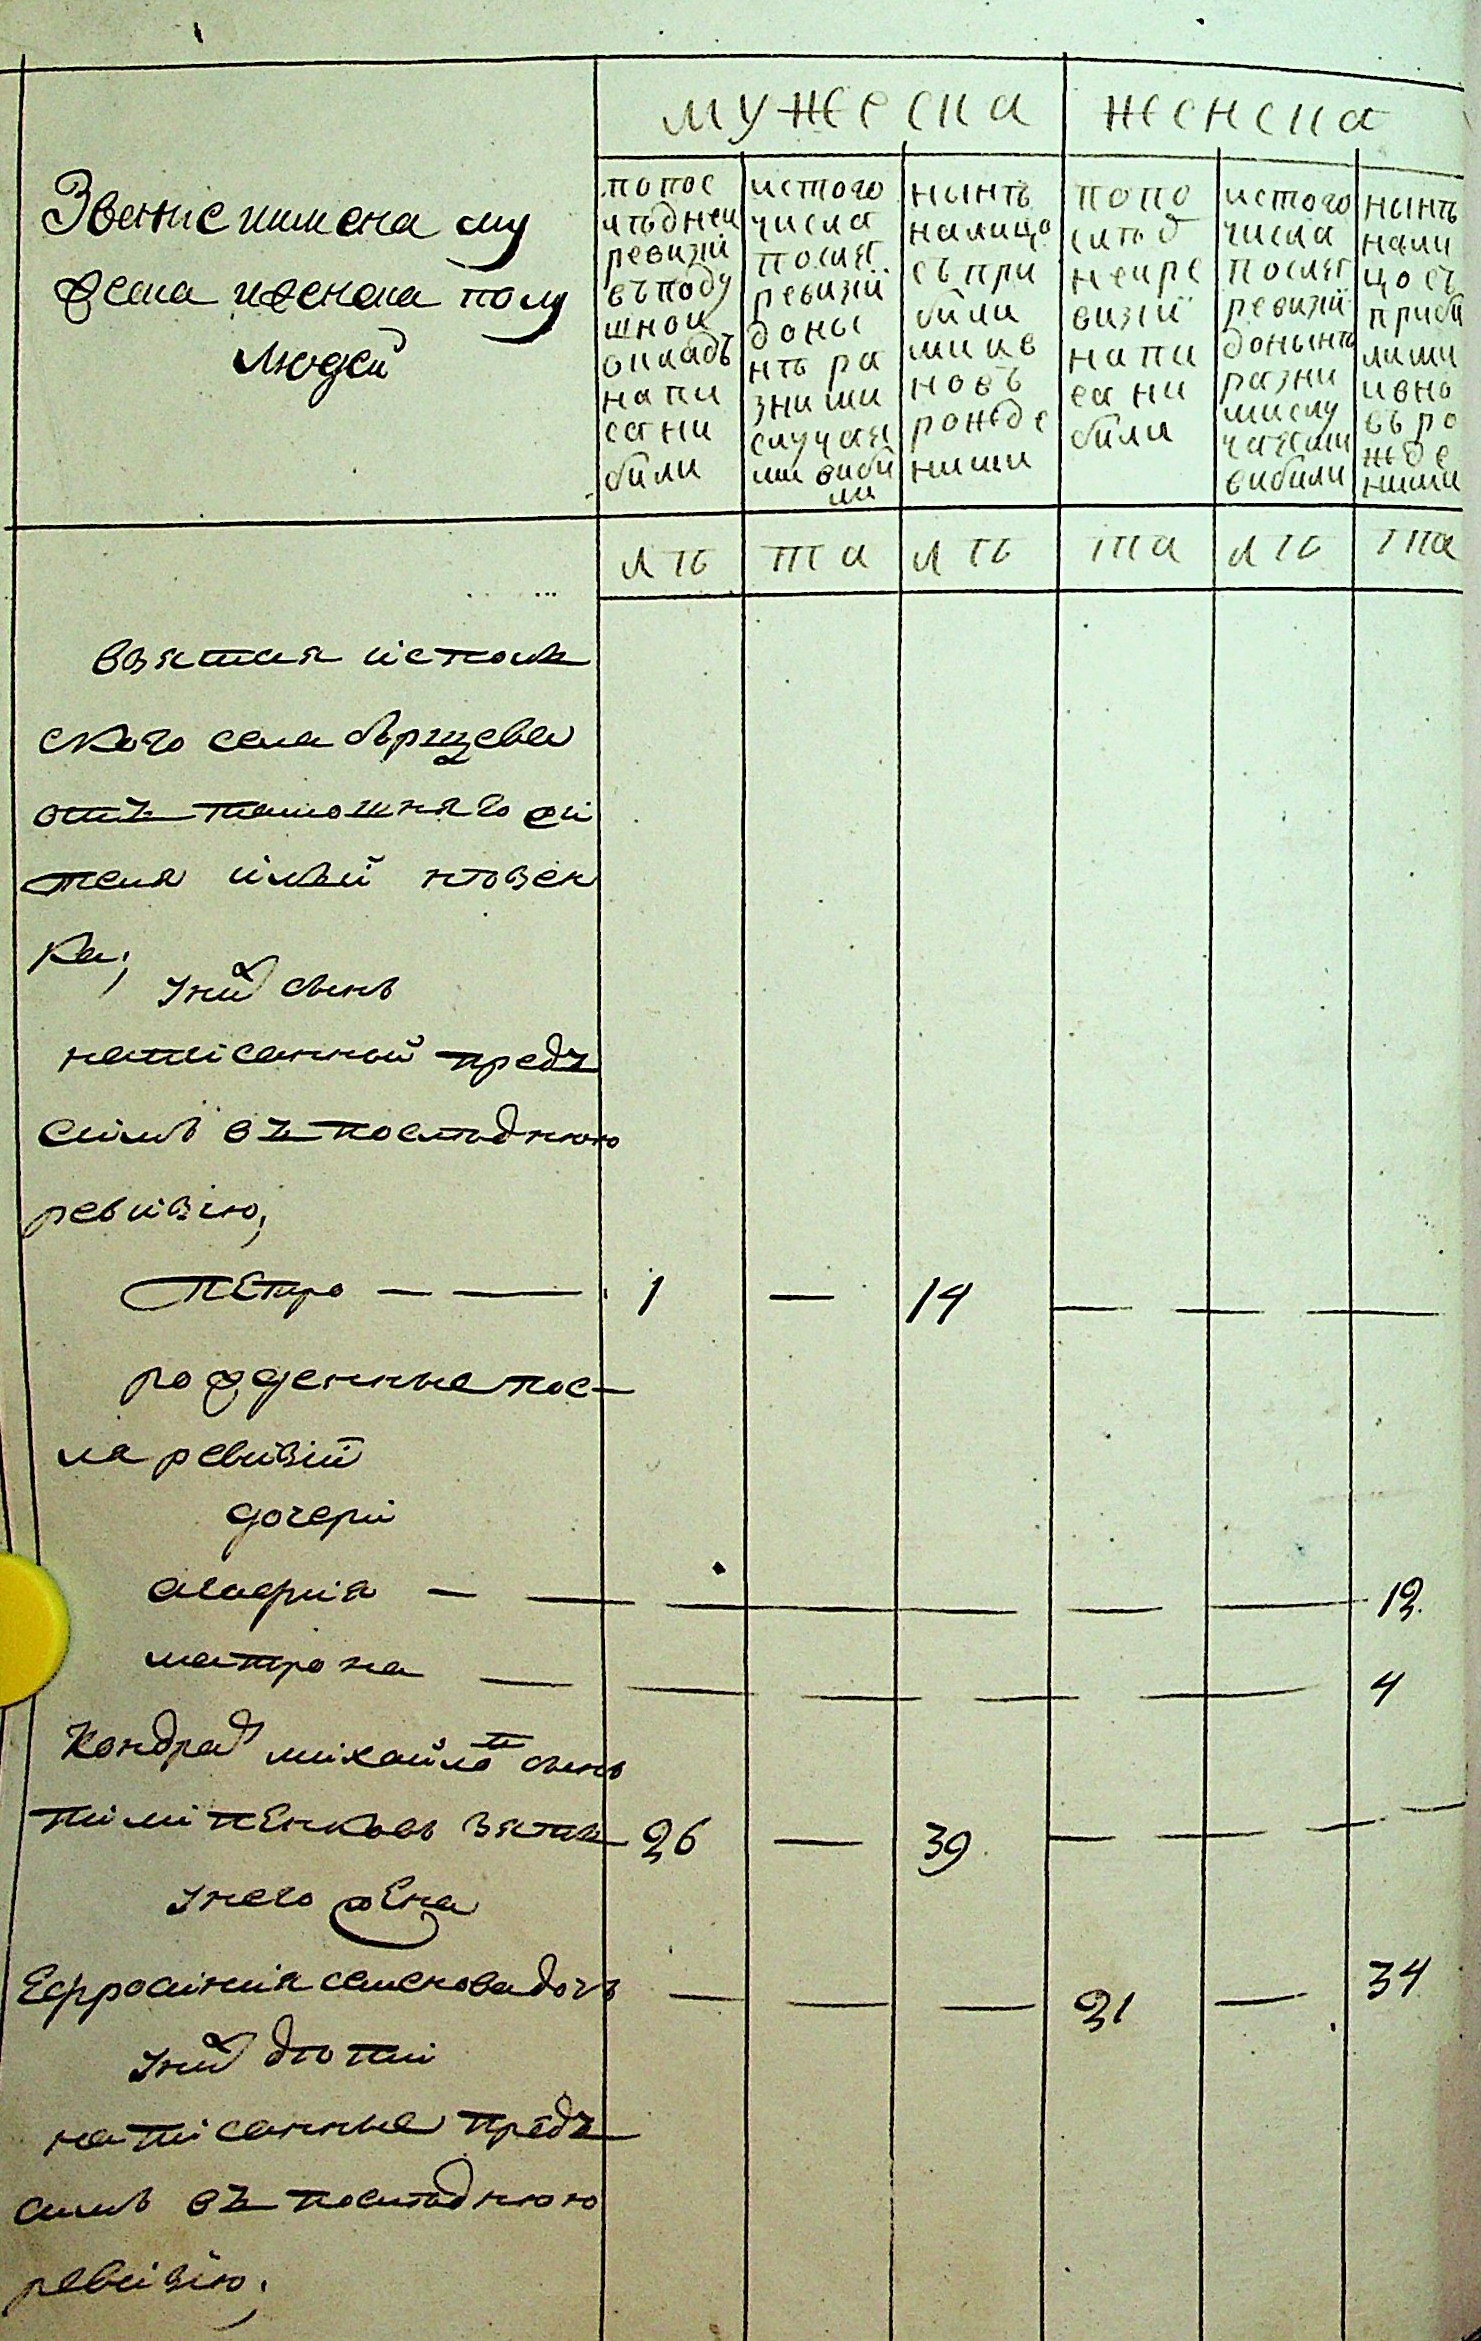 мужеска женска
Званіе иимена му
жеска иженска полу
людей
попос
лѣднеи
ревизіи
въподу
шнои
окладъ
напи
сани
били
истого
числа
послѣ
ревизіи
доны
нѣ ра
зними
случая
ми виби
ли
нынѣ
налицо
съпри
били
ми ив
новъ
рожде
ними
попо
слѣд
неире
визіи
напи
сани
били
истого
числа
послѣ
ревизіи
донынѣ
разни
мислу
чаями
вибили
нынѣ
нали
цосъ
приби
лими
ивно
въро
жде
ними
лѣ та лѣ та лѣ та
взятая
ского села борщева
отъ тамошняго жи
теля
ка;
унихъ сынъ
написанный предъ
симъ въ последнюю
ревизію;
Петро — — 1 — 14 — — —
рожденные пос-
ля ревизіи
дочери
агафия — — — — — — — 12.
матрона — — — — — — 4
Кондрат михайловъ сынъ
пилипенковъ зятъ 26 — 39. — — —
унего жена
Ефросиния семенова дочь — — — 21 — 34
унихъ дѣти
написанные предъ
симъ въ последнюю
ревизію;